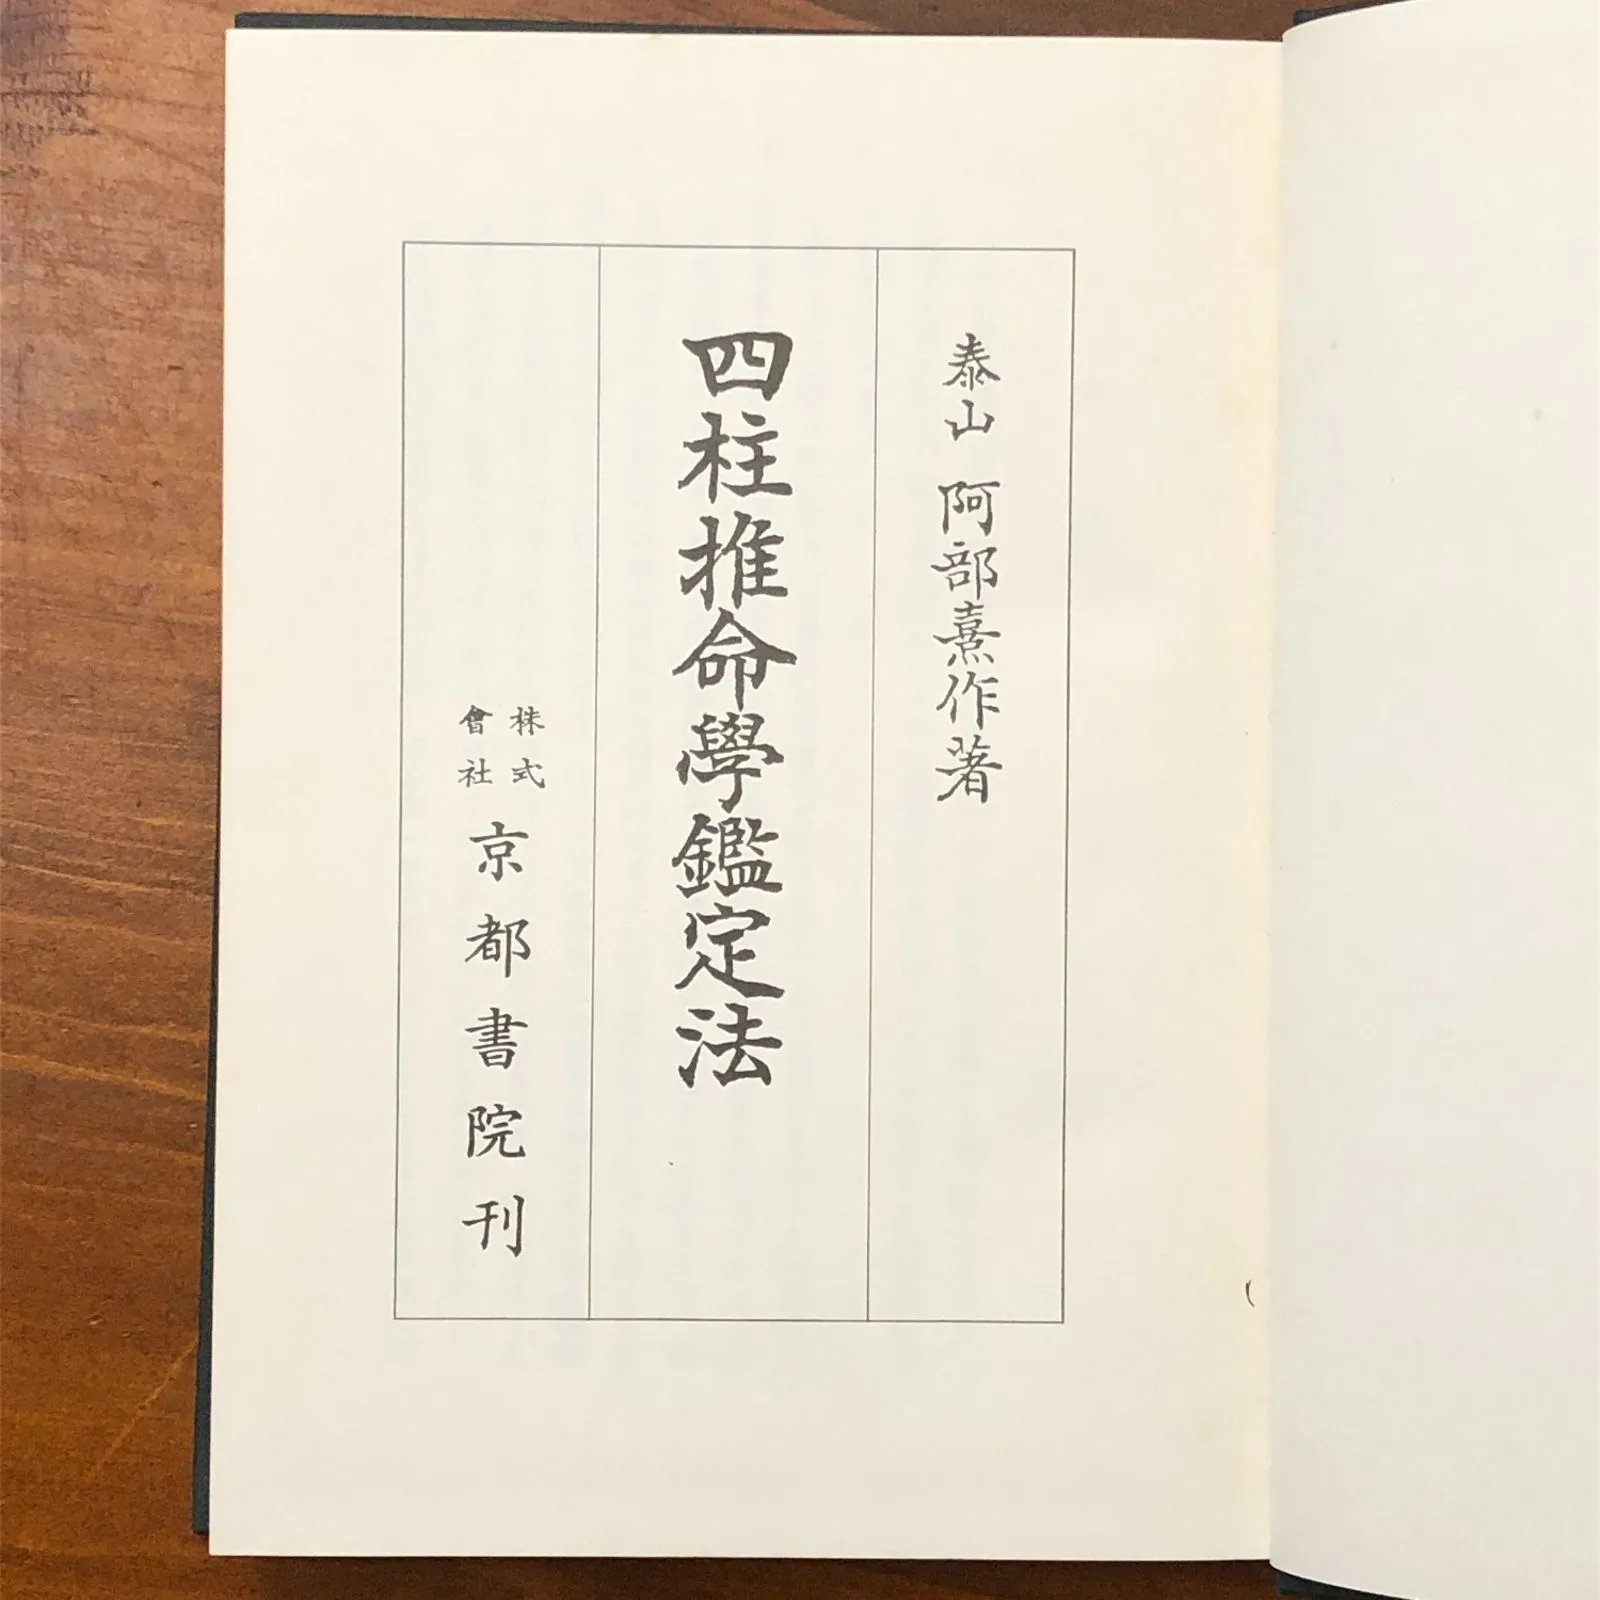 泰山 阿部熹作著
四柱推命學鑑定法
株式
會社
京都書院刊